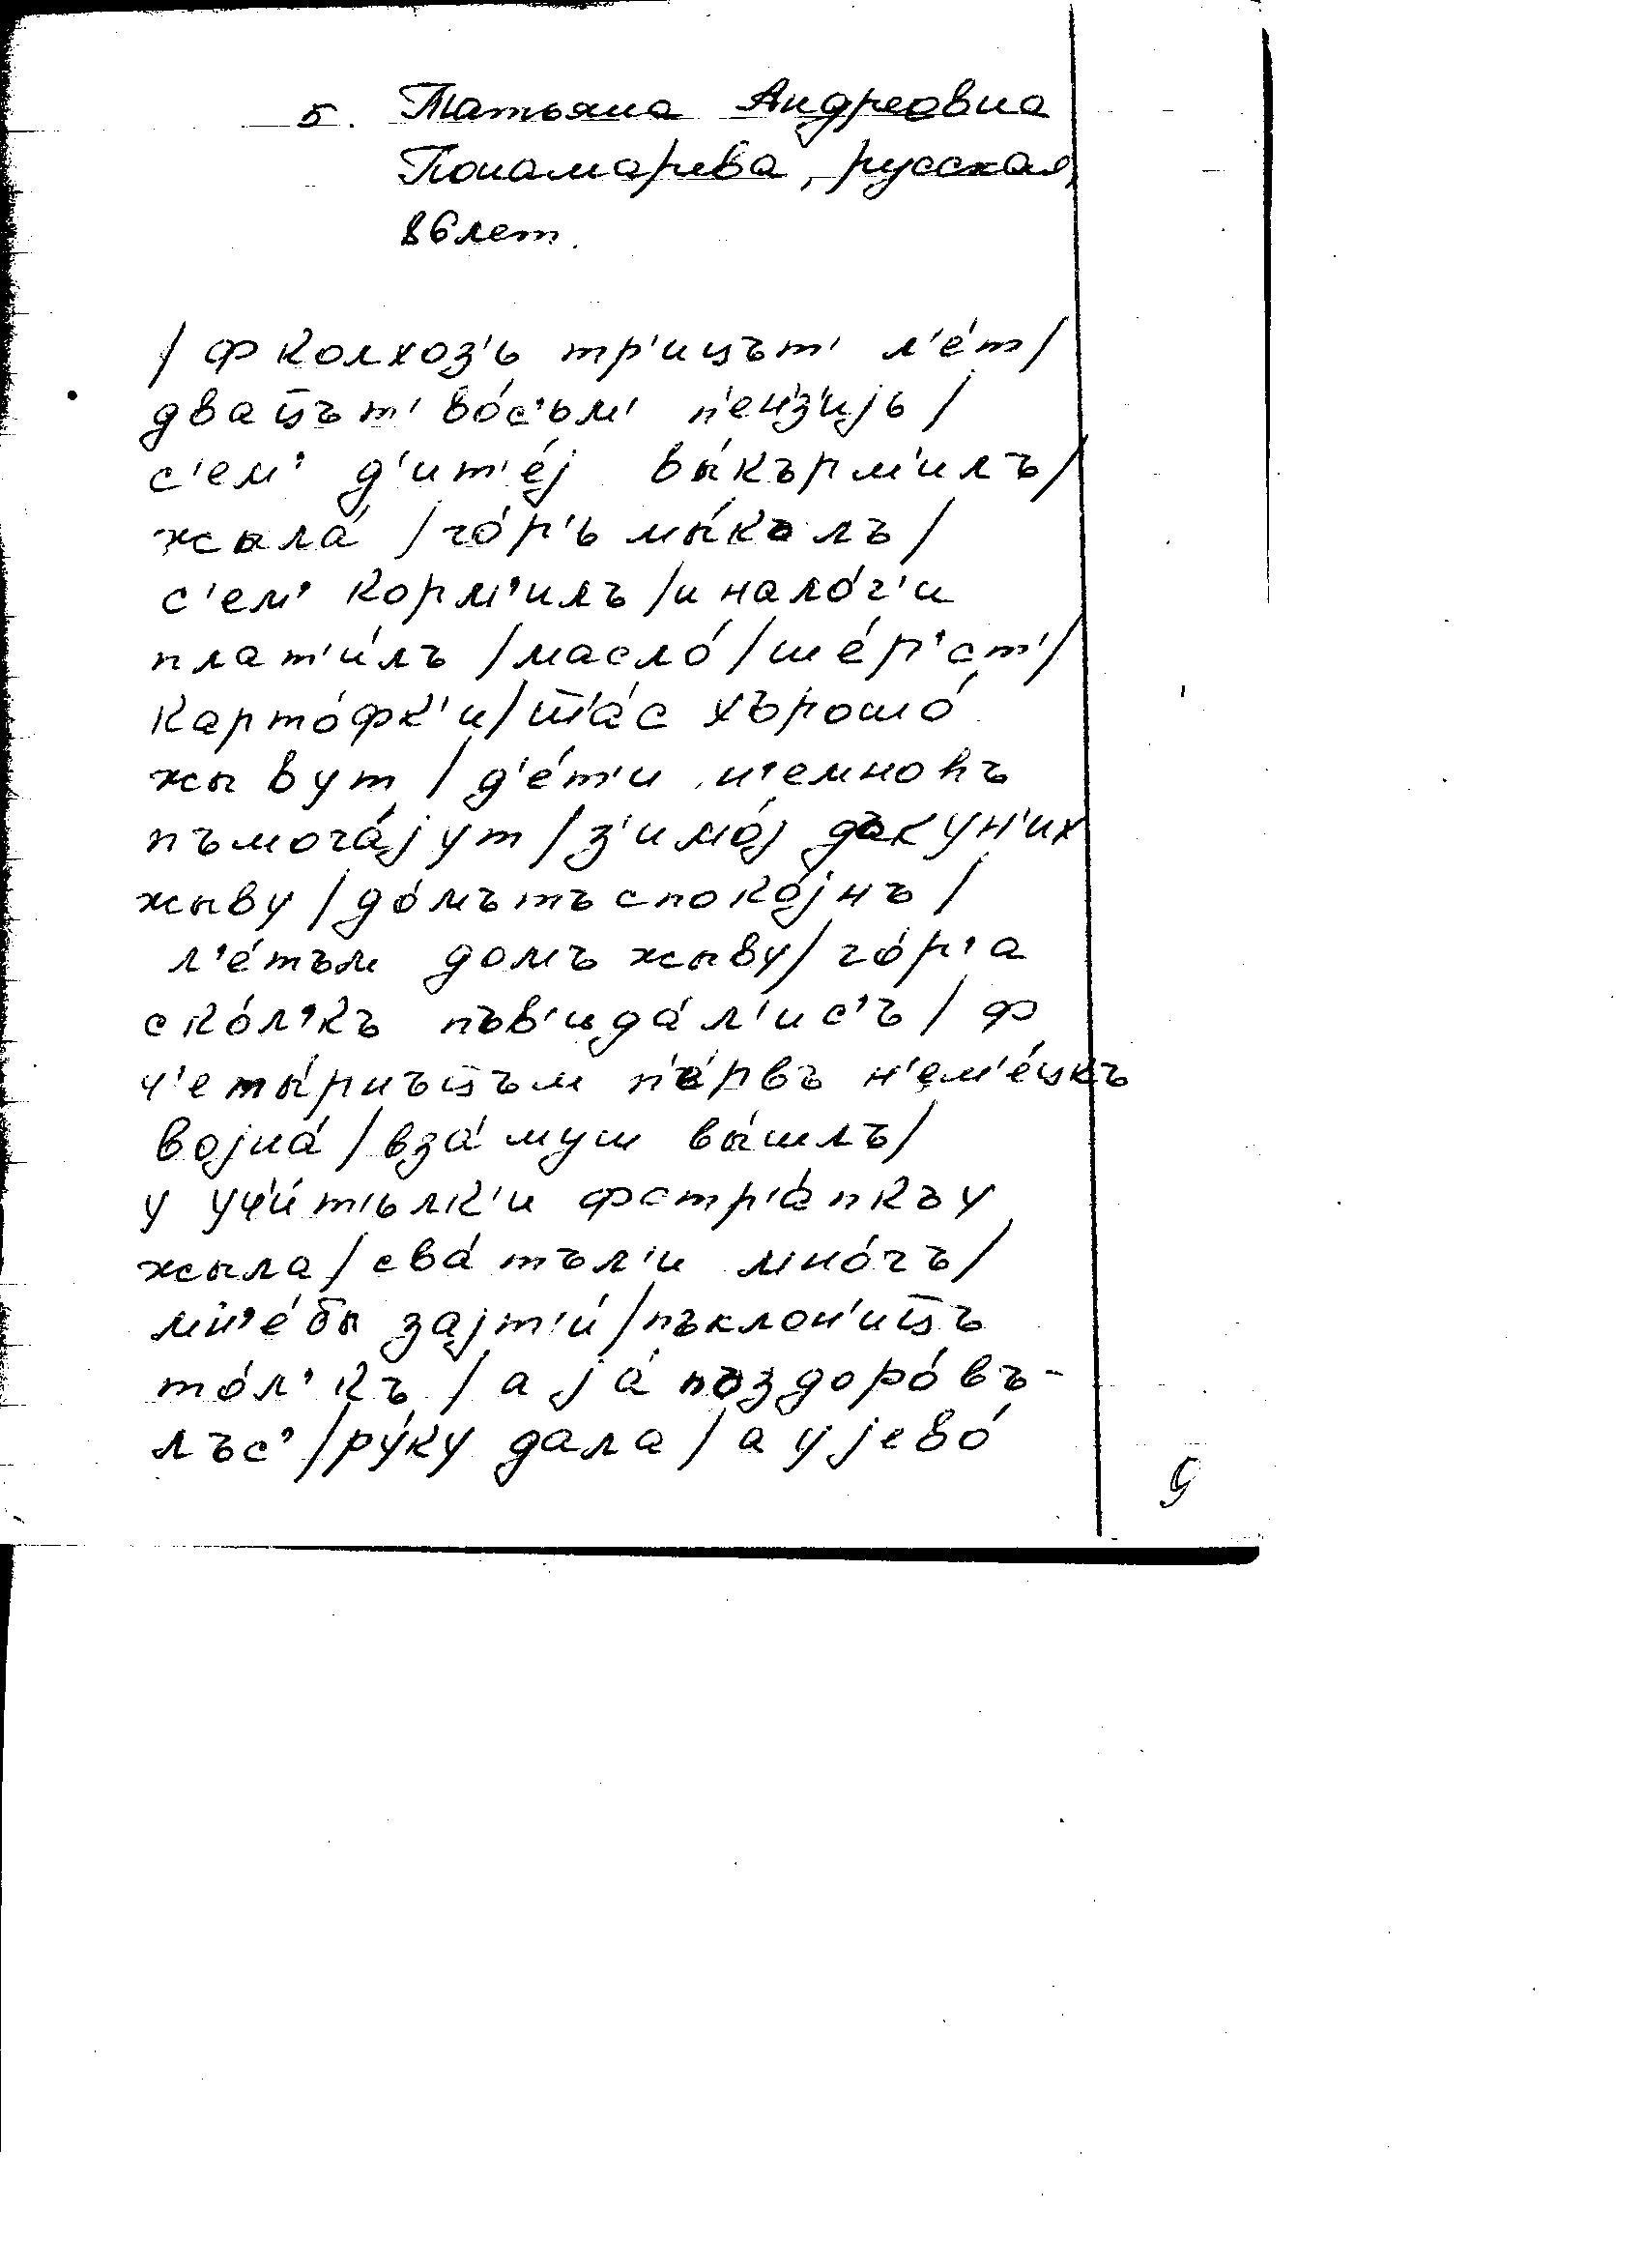 5. Татьяна Андреевна
Понамарева, русская,
86 лет.
/ ф колхоз'ь тр'ицът' л'éт /
двац̅ът' вóс'ьм' п'ен'з'ијь /
с'ем' д'ит'éј вы́кърм'илъ /
жыла́ / гóр'ь мы́кълъ /
с'ем' корм'илъ / и налóг'и
плат'и́лъ / маслó / шéр'ст' /
картóфк'и / т̅'áс хърошó
жывут / д'éт'и н'емношъ
пъмогáјут / з'имóј дък ун'их
жыву / дóмътъ спокóјнъ /
л'éтъм домъ жыву / гóр'а
скóл'къ пъв'идáл'ис'ъ / ф
ч'еты́рнъц̅ъм п'éрвъ н'ем'éцкъ
војнá / взáмуш вы́шлъ /
у уч'и́т'ьлк'и фстр'áпкъу
жыла / свáтъл'и мнóгъ /
мн'é бы зајт'и́ / пъклон'иц̅ъ
тóл'къ / а јá поздорóвъ-
лъс' / рýку дала / а у јевó
9